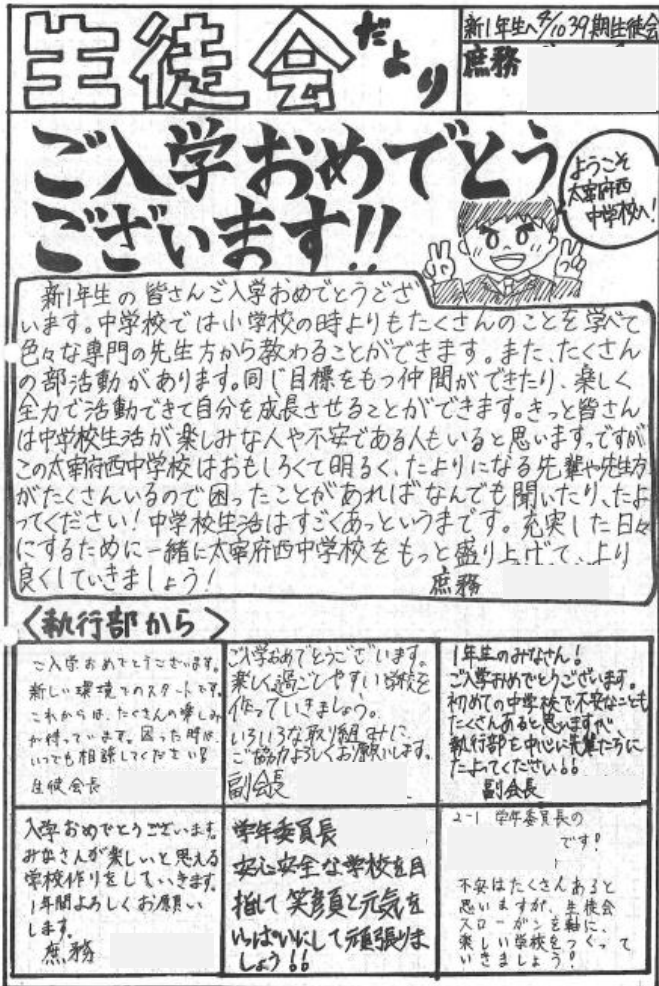 生徒会だより
新1年生へ4/10 39期生徒会
庶務
ご入学おめでとう
ございます!!
ようこそ
太宰府西
中学校へ!
新1年生の皆さんご入学おめでとうござ
います。中学校では小学校の時よりもたくさんのことを学べて
色々な専門の先生方から教わることができます。また、たくさん
の部活動があります。同じ目標をもつ仲間ができたり、楽しく
全力で活動できて自分を成長させることができます。きっと皆さん
は中学校生活が楽しみな人や不安である人もいると思います。ですが
この太宰府西中学校はおもしろくて明るく、たよりになる先輩や先生方
がたくさんいるので困ったことがあればなんでも聞いたり、たよ
ってください!中学校生活はすごくあっというまです。充実した日々
にするために一緒に太宰府西中学校をもっと盛り上げて、より
良くしていきましょう!
庶務
〈執行部から〉
ご入学おめでとうございます。
新しい環境でのスタートです。
これからは、たくさんの楽しみ
が待っています。困った時は、
いつでも相談してください!!
生徒会長
ご入学おめでとうございます。
楽しく過ごしやすい学校を
作っていきましょう。
いろいろな取り組みに
ご協力よろしくお願いします。
副会長
1年生のみなさん!
ご入学おめでとうございます。
初めての中学校で不安なことも
たくさんあると思いますが、
執行部を中心に先輩たちに
たよってください!!
副会長
入学おめでとうございます。
みなさんが楽しいと思える
学校作りをしていきます。
1年間よろしくお願い
します。
庶務
学年委員長
安心安全な学校を目
指して笑顔と元気を
いっぱいにして頑張りま
しょう!!
2-1 学年委員長の
です!
不安はたくさんあると
思いますが、生徒会
スローガンを軸に、
楽しい学校をつくって
いきましょう!